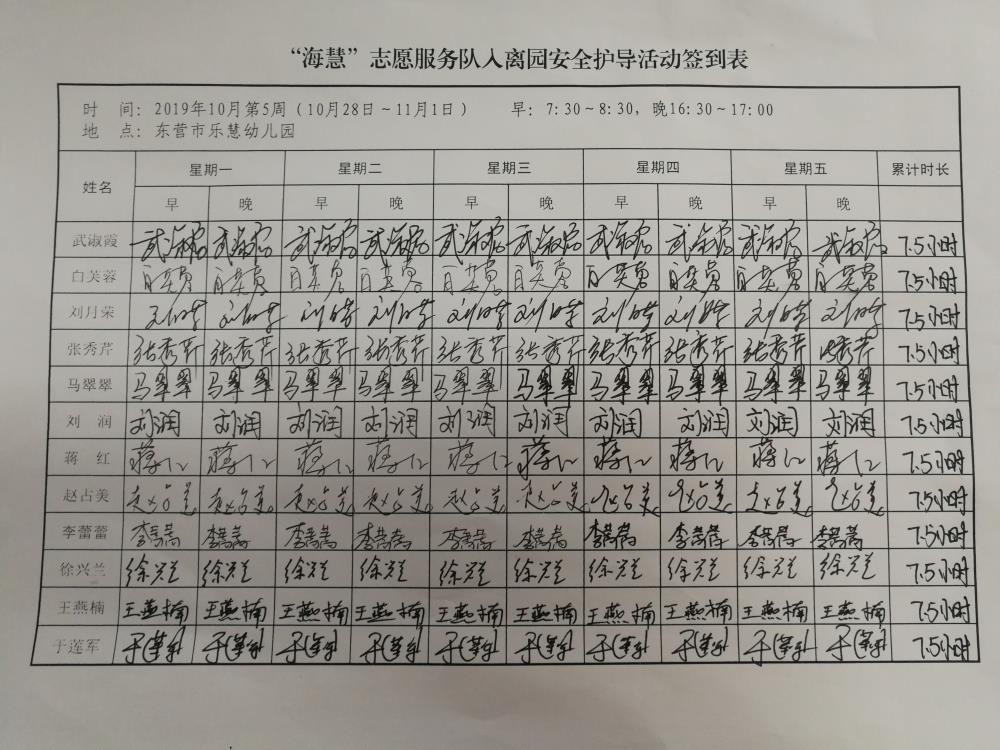 “海慧”志愿服务队入离园安全护导活动签到表
时 间: 2019年10月第5周（10月28日～11月1日） 早: 7:30～8:30, 晚16:30～17:00
地 点: 东营市乐慧幼儿园
姓名 星期一 星期二 星期三 星期四 星期五 累计时长
早 晚 早 晚 早 晚 早 晚 早 晚
武淑霞 武淑霞 武淑霞 武淑霞 武淑霞 武淑霞 武淑霞 武淑霞 武淑霞 武淑霞 武淑霞 7.5小时
白芙蓉 7.5小时
刘月荣 刘月荣 刘月荣 刘月荣 刘月荣 刘月荣 刘月荣 刘月荣 刘月荣 刘月荣 刘月荣 7.5小时
张秀芹 张秀芹 张秀芹 张秀芹 张秀芹 张秀芹 张秀芹 张秀芹 张秀芹 张秀芹 张秀芹 7.5小时
马翠翠 马翠翠 马翠翠 马翠翠 马翠翠 马翠翠 马翠翠 马翠翠 马翠翠 马翠翠 马翠翠 7.5小时
刘 润 刘润 刘润 刘润 刘润 刘润 刘润 刘润 刘润 刘润 刘润 7.5小时
蒋 红 蒋红 蒋红 蒋红 蒋红 蒋红 蒋红 蒋红 蒋红 蒋红 蒋红 7.5小时
赵占美 赵占美 赵占美 赵占美 赵占美 赵占美 赵占美 赵占美 赵占美 赵占美 赵占美 7.5小时
李蕾蕾 7.5小时
徐兴兰 徐兴兰 徐兴兰 徐兴兰 徐兴兰 徐兴兰 徐兴兰 徐兴兰 徐兴兰 徐兴兰 徐兴兰 7.5小时
王燕楠 王燕楠 王燕楠 王燕楠 王燕楠 王燕楠 王燕楠 王燕楠 王燕楠 王燕楠 王燕楠 7.5小时
于莲军 于莲军 于莲军 于莲军 于莲军 于莲军 于莲军 于莲军 于莲军 于莲军 于莲军 7.5小时